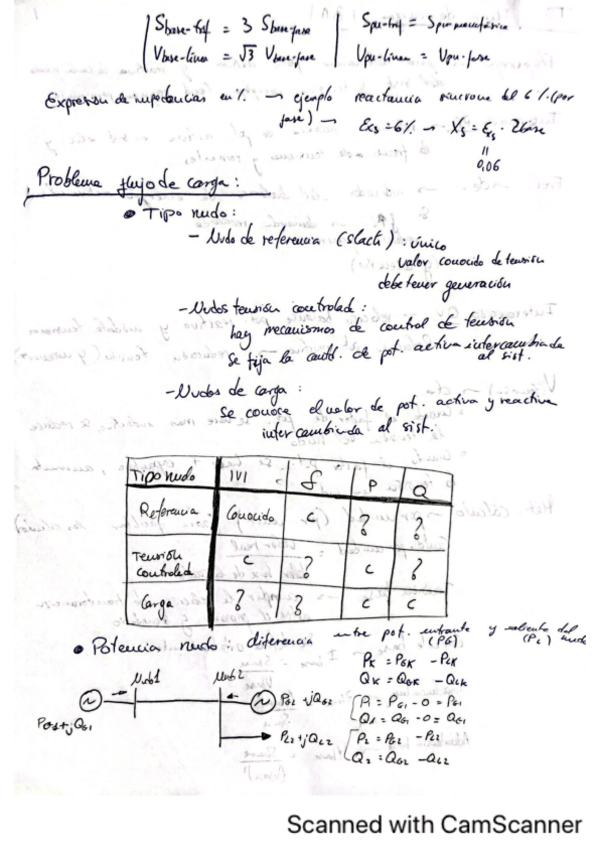 Sbase-trif = 3 Sbase-fase
Spu-trif = Spu-monofásica
Vbase-línea = √3 Vbase-fase
Vpu-línea = Vpu-fase
Expresión de impedancias en % → ejemplo reactancia síncrona del 6 % (por
fase) → Exs = 6% → Xs = Exs · Zbase
"
0,06
Problema flujo de carga:
• Tipo nudo:
- Nudo de referencia (Slack): único
valor conocido de tensión
debe tener generación
- Nudos tensión controlad:
hay mecanismos de control de tensión
se fija la cantd. de pot. activa intercambiada
al sist.
- Nudos de carga:
Se conoce el valor de pot. activa y reactiva
intercambiada al sist.
Tipo nudo |V| δ P Q
Referencia Conocido C ? ?
Tensión controlad C ? C ?
Carga ? ? C C
• Potencia nudo: diferencia entre pot. entrante y saliente del nudo
(PG) (PL)
PK = PGK - PLK
QK = QGK - QLK
Nudo1 Nudo2
PG2 + jQG2
P1 = PG1 - 0 = PG1
PG1 + jQG1
Q1 = QG1 - 0 = QG1
PL2 + jQL2
P2 = PG2 - PL2
Q2 = QG2 - QL2
Scanned with CamScanner